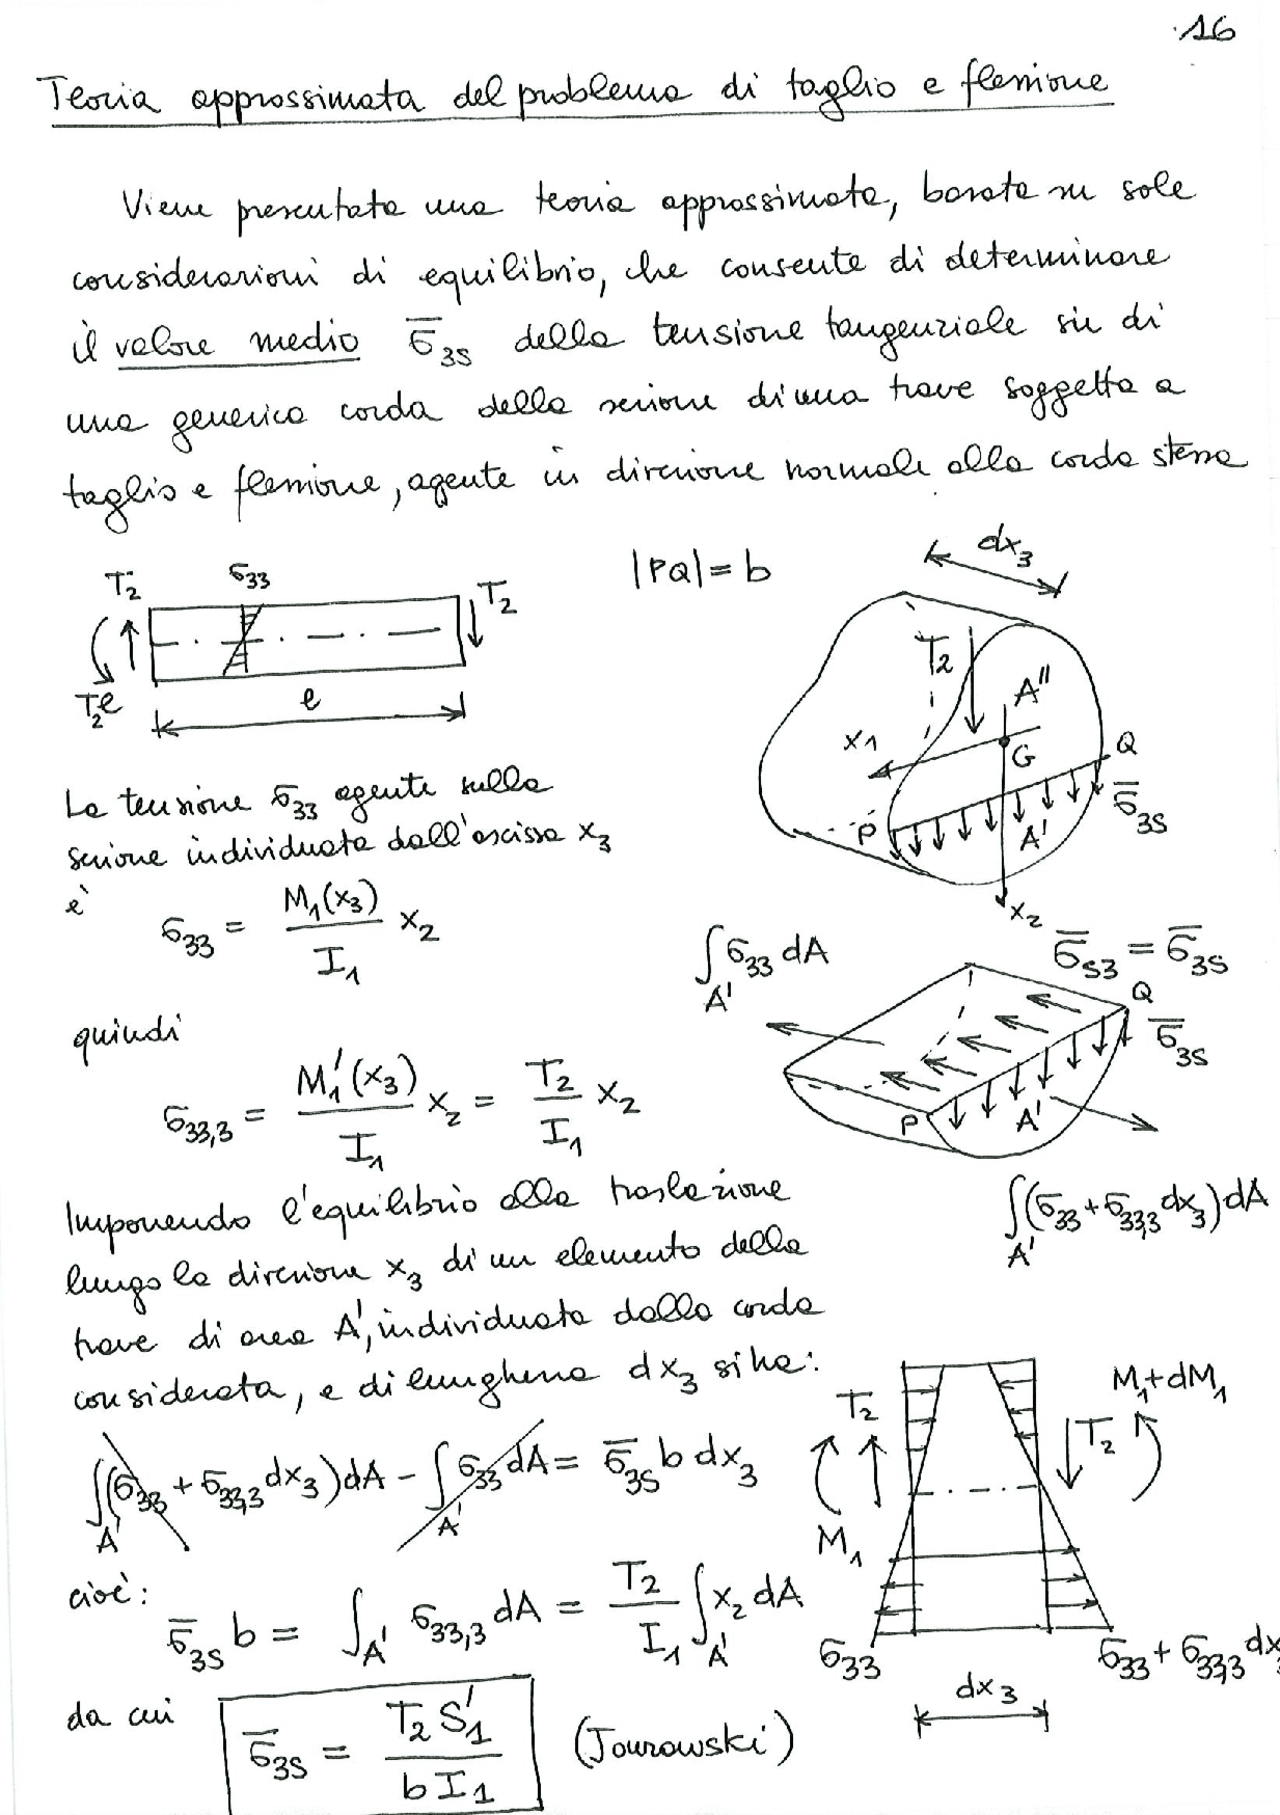 .16
Teoria approssimata del problema di taglio e flessione
Viene presentata una teoria approssimata, basata su sole
considerazioni di equilibrio, che consente di determinare
il valore medio σ̅₃ₛ della tensione tangenziale su di
una generica corda della sezione di una trave soggetta a
taglio e flessione, agente in direzione normale alla corda stessa
|PQ| = b
dx₃
T₂ σ₃₃ T₂
T₂ℓ
ℓ
T₂
A''
x₁
G
Q
P
A'
σ̅₃ₛ
x₂
La tensione σ₃₃ agente sulla
sezione individuata dall'ascissa x₃
è
σ₃₃ = M₁(x₃)/I₁ x₂
∫_A' σ₃₃ dA
σ̅ₛ₃ = σ̅₃ₛ
Q
σ̅₃ₛ
P
A'
∫_A' (σ₃₃ + σ₃₃,₃ dx₃) dA
quindi
σ₃₃,₃ = M₁'(x₃)/I₁ x₂ = T₂/I₁ x₂
Imponendo l'equilibrio alla traslazione
lungo la direzione x₃ di un elemento della
trave di area A', individuata dalla corda
considerata, e di lunghezza dx₃ si ha:
∫_A' (σ₃₃ + σ₃₃,₃ dx₃) dA - ∫_A' σ₃₃ dA = σ̅₃ₛ b dx₃
cioè:
σ̅₃ₛ b = ∫_A' σ₃₃,₃ dA = T₂/I₁ ∫_A' x₂ dA
da cui
σ̅₃ₛ = T₂ S₁'/b I₁
(Jourowski)
T₂
M₁
T₂
M₁+dM₁
σ₃₃
σ₃₃ + σ₃₃,₃ dx₃
dx₃